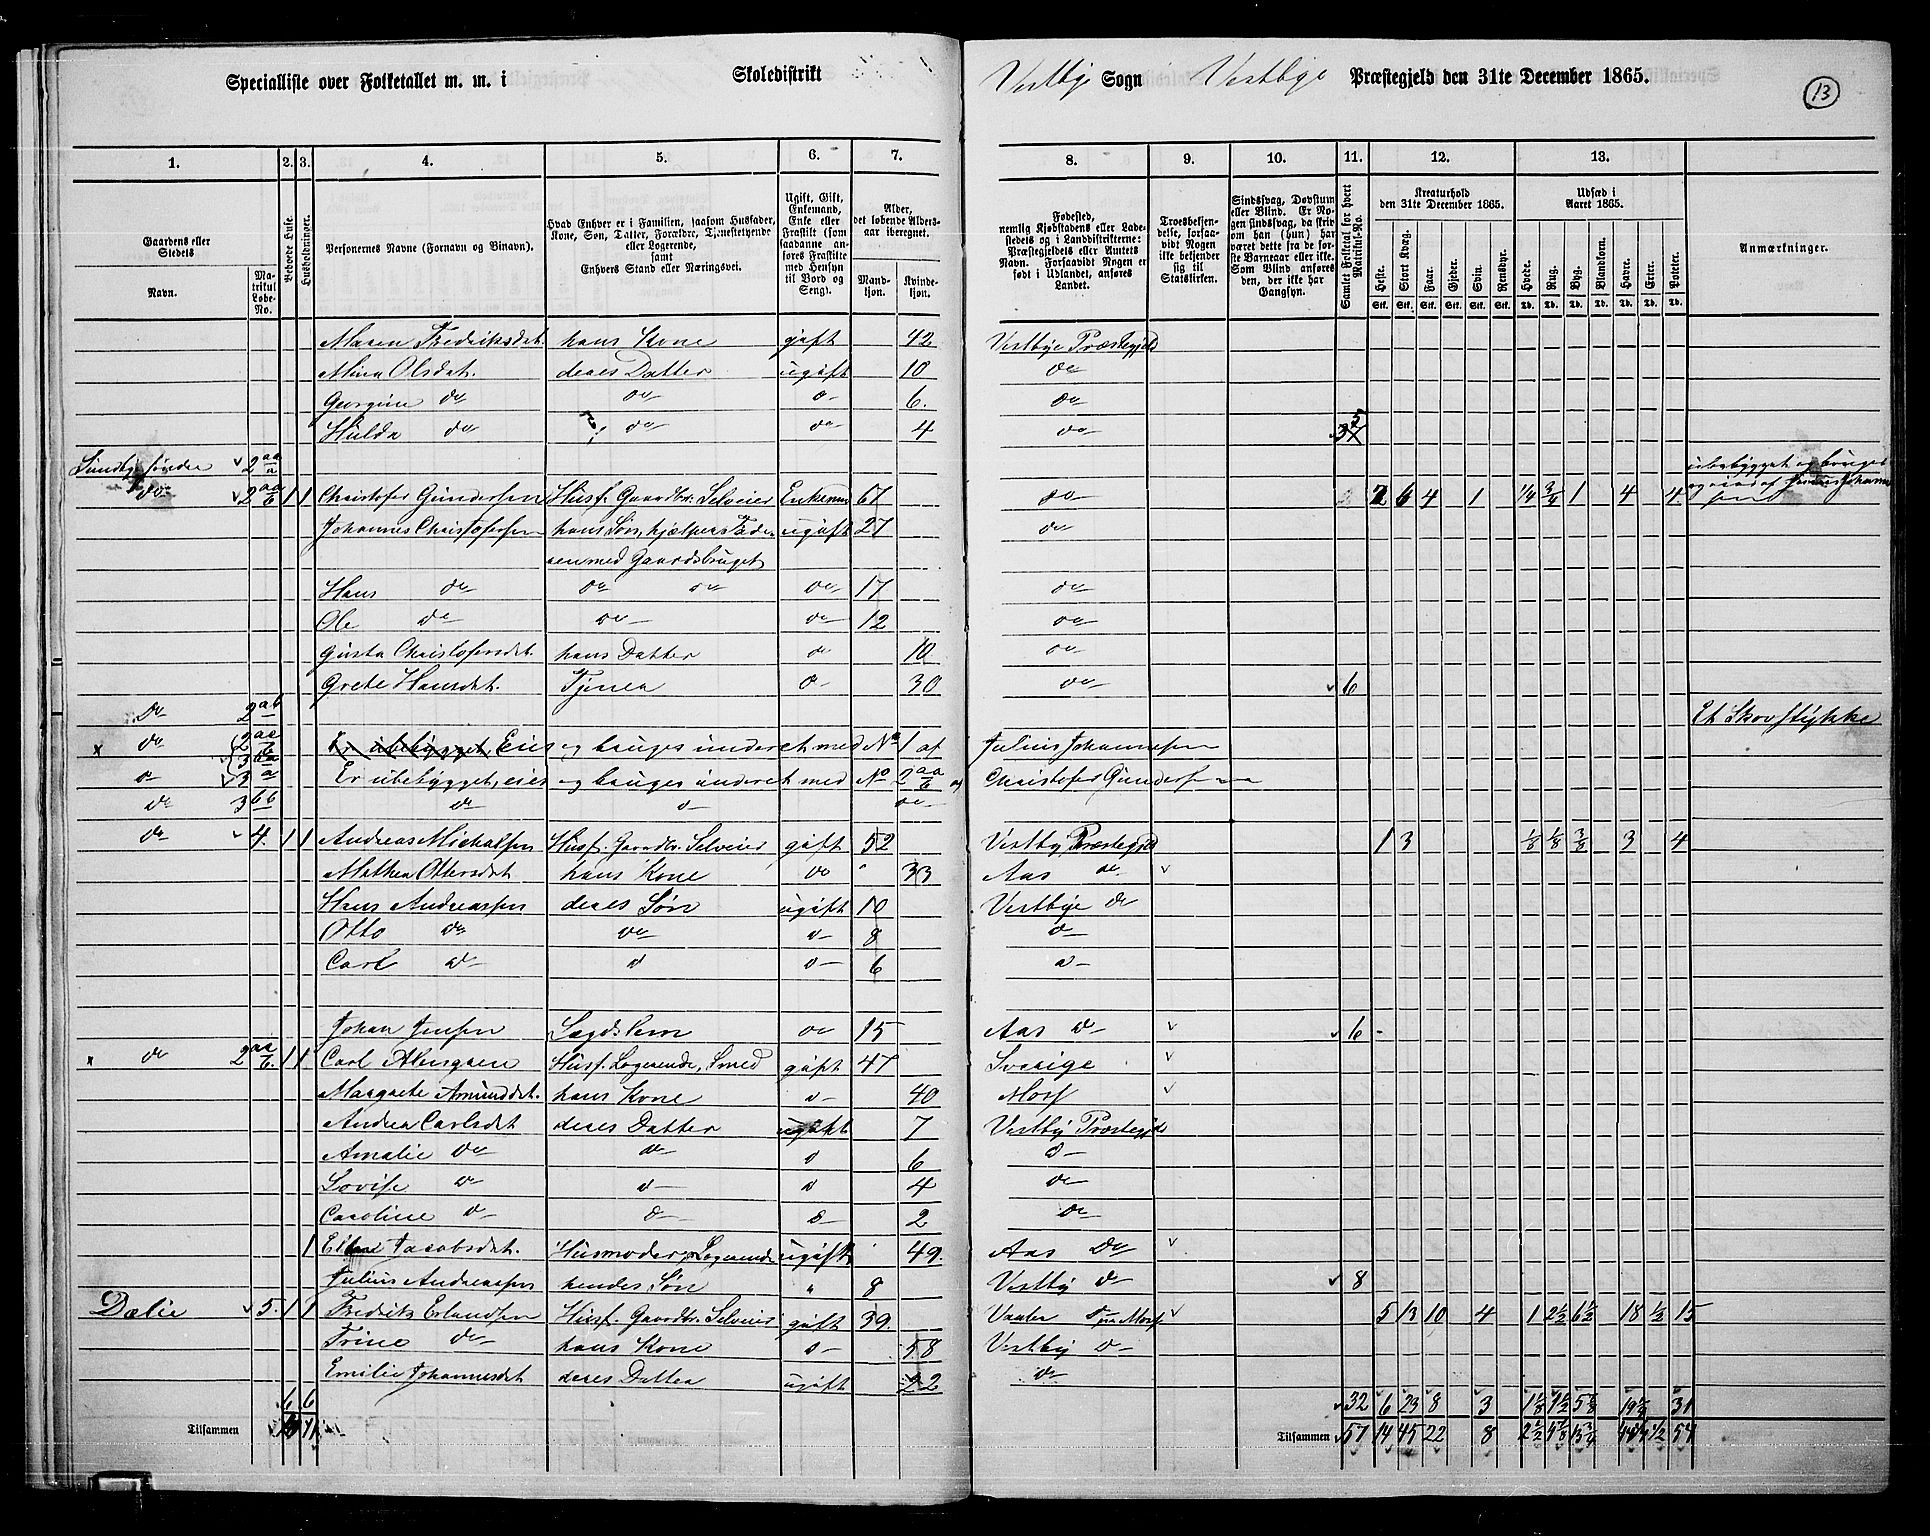 Specialliste over Folketallet m. m. i Skoledistrikt Vestby Sogn Vestbye Præstegjeld den 31te December 1865. 13
1. 2. 3. 4. 5. 6. 7. 8. 9. 10. 11. 12. 13.
Gaardens eller Stedets Navn. Matrikul Løbe-No.
Beboede Huse.
Husholdninger.
Personernes Navne (Fornavn og Binavn).
Hvad Enhver er i Familien, saasom Husfader, Kone, Søn, Datter, Forældre, Tjenestetyende eller Logerende, samt Enhvers Stand eller Næringsvei.
Ugift, Gift, Enkemand, Enke eller Fraskilt (som saadanne anføres Fraskilte med Hensyn til Bord og Seng).
Alder, det løbende Alders-aar iberegnet. Mand-kjøn. Kvinde-kjøn.
Fødested, nemlig Kjøbstadens eller Ladestedets og i Landdistrikterne: Præstegjeldets eller Amtets Navn. Forsaavidt Nogen er født i Udlandet, anføres Landet.
Troesbekjendelse, forsaavidt Nogen ikke bekjender sig til Statskirken.
Sindssvag, Døvstum eller Blind. Er Nogen sindssvag, da skrives om han (hun) har været dette fra de første Barneaar eller ikke. Som Blind anføres den, der ikke har Gangsyn.
Samlet Folketal for hvert Matrikul-No.
Kreaturhold den 31te December 1865. Heste. Stort Kvæg. Faar. Geder. Svin. Rensdyr.
Udsæd i Aaret 1865. Hvede. Rug. Byg. Blandkorn. Havre. Erter. Poteter.
Anmærkninger.
Stk. Stk. Stk. Stk. Stk. Stk. Td. Td. Td. Td. Td. Td. Td.
Maren Fredriksdet. hans Kone gift 42 Vestbye Præstegjeld
Mina Olsdat. deres Datter ugift 10 do
Georgine do do do 6. do
Hulda do do do 4 do
Sundby søndre 2 aa/a ubebygget og bruges
do 2 aa/b 1 1 Christofer Gundersen Husf. Gaardbr. Selveier Enkem 67 do 2 6 4 1 1/4 3/4 1 4 4
Johannes Christofersen hans Søn, hjælper Faderen med Gaardsbruget ugift 27 do
Hans do do do do 17 do
Ole do do do 12 do
Gusta Christofersdet. hans Datter do 10 do
Grete Hansdet. Tjener do 30 do 6
Do 2 ab Et Skovstykke
x do 2 ac/b 3 ba Er ubebygget, Eies og bruges underet med No 1 af Julius Johannesen
do 3 a Er ubebygget, eies og bruges underet med No 2 aa/b af Christofer Gundersen
do 3 bb do do do
do 4. 1 1 Andreas Michalsen Husf. Gaardbr. Selveier gift 52 Vestby Præstegjeld 1 3 1/8 1/8 3/8 3 4
Mathea Ottersdet hans Kone do 33 Aas do
Hans Andreassen deres Søn ugift 10 Vestbye do
Otto do do do 8 do
Carl do do do 6 do
Johan Jensen Lægdslem do 15 Aas do 6
x do 2 aa/b. 1 1 Carl Almgren Husf. Logerende, Smed gift 47 Sverige
Margrete Amunddet. hans Kone do 40 Moss
Andrea Carlsdet deres Datter ugift 7 Vestby Præstegjd
Amalie do do do 6 do
Lovise do do do 4 do
Caroline do do do 2 do
1 Jacobsdet. Husmoder, Logerende ugift 49. Aas do
Julius Andreassen hendes Søn " 8 Vestby do 8
Dælie 5. 1 1 Fredrik Erlandsen Husf. Gaardbr. Selveier gift 39. Vaaler pr Moss 5 13 10 4 1 2 1/2 6 1/2 18 1/2 15
Trine do hans Kone do 58 Vestby do
Emilie Johannesdet deres Datter ugift 22 do
6 6 32 6 23 8 3 1 1/8 1 1/2 5 5/8 31
Tilsammen Tilsammen 57 14 45 22 8 2 1/2 1/2 54